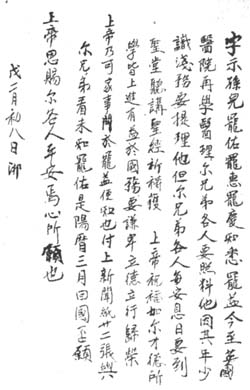 字示孫兒寵佑寵惠寵慶知悉寵益今至英國
醫院再學醫理尔兄弟各人要照料他因其年少
識淺務要提理他但尔兄弟各人每安息日要到
聖堂聽講聖經祈禱獲 上帝祝福如尔才德所
學皆上進有益於國務要謙卑立德立行歸榮
上帝乃可家事問於寵益便知也付上新聞紙廿二張與
尔兄弟看未知寵佑是陽曆三月回國否 順
上帝恩賜尔各人平安焉心所願也
戊二月初八日